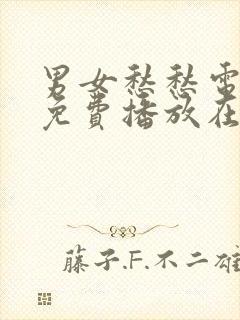 男女愁愁電
免費播放在
藤子.F.不二雄